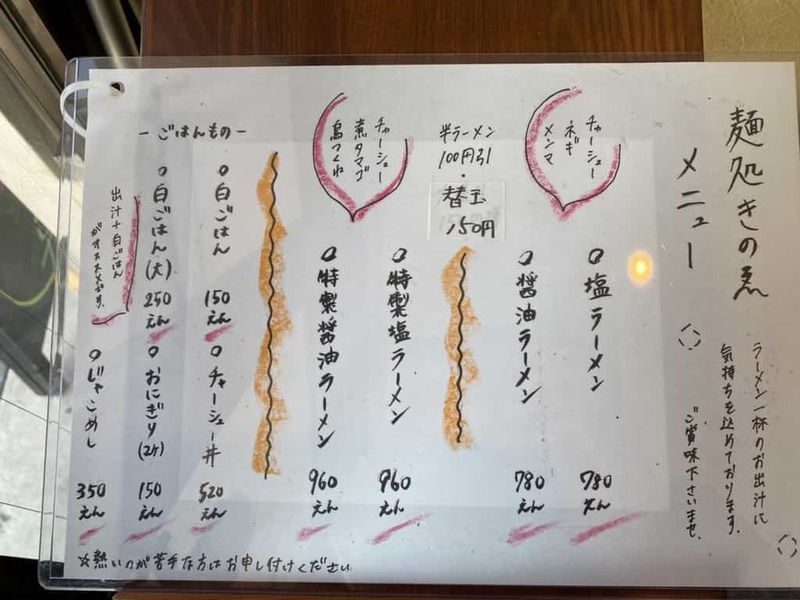 麺処きのゑ
メニュー
ラーメン一杯のお出汁に
気持ちを込めております。
ご賞味下さいませ。
チャーシュー
ネギ
メンマ
○塩ラーメン 780えん
○醤油ラーメン 780えん
半ラーメン
100円引
・
替玉
150円
チャーシュー
煮タマゴ
鳥つくね
○特製塩ラーメン 960えん
○特製醤油ラーメン 960えん
－ごはんもの－
○白ごはん 150えん
○チャーシュー丼 520えん
○白ごはん(大) 250えん
○おにぎり(2ヶ) 150えん
出汁＋白ごはん
がオススメです。
○じゃこめし 350えん
☆熱いのが苦手な方はお申し付けください